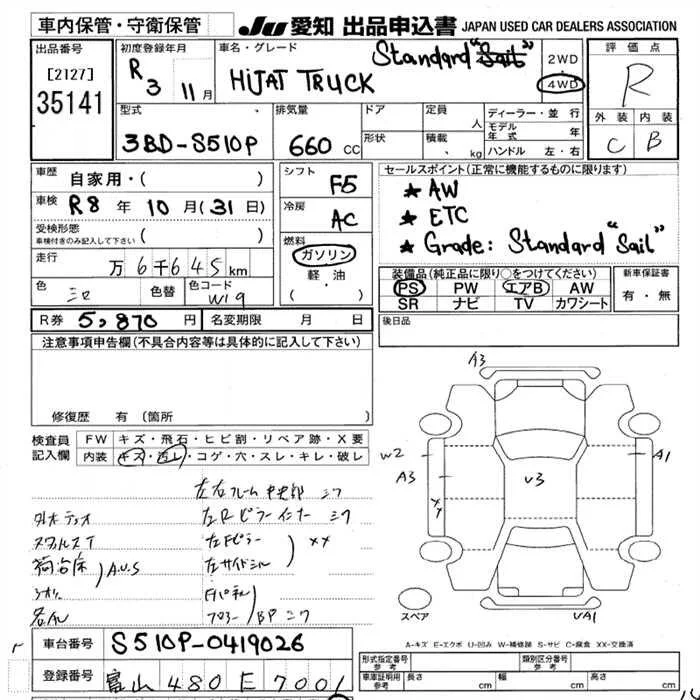 車内保管・守衛保管 JU 愛知 出品申込書 JAPAN USED CAR DEALERS ASSOCIATION
出品番号 初度登録年月 車名・グレード Standard "Sail" 2WD 評価点
[2127] R 3 11月 HIJAT TRUCK 4WD R
35141 型式 排気量 ドア 定員 人 ディーラー・並行 外装 内装
3BD-S510P 660 CC 形状 積載 kg モデル年式 年 C B
ハンドル 左・右
車歴 自家用・( ) シフト F5 セールスポイント(正常に機能するものに限ります)
車検 R8年 10月(31日) 冷房 AC ★ AW
受検形態 車検付きのみ記入して下さい ( ) ★ ETC
燃料 ガソリン ★ Grade: Standard "Sail"
走行 万6千645km 軽油 装備品(純正品に限り○をつけてください) 新車保証書
色 色替 色コード W19 ( ・ ) PS PW エアB AW 有・無
SR ナビ TV カワシート
R券 5,870円 名変期限 月 日 後日品
注意事項申告欄(不具合内容等は具体的に記入して下さい)
修復歴 有(箇所
検査員 FW キズ・飛石・ヒビ割・リペア跡・X要
記入欄 内装 キズ・汚レ・コゲ・穴・スレ・キレ・破レ
A3
W2 A1
A3 U3
XX
UA1
スペア
左右フレーム
左Rピラーインナー
左Fピラー XX
荷台床 A.U.S 左サイドシル
フロアー BP
A-キズ E-エクボ U-凹み W-補修跡 S-サビ C-腐食 XX-交換済
車台番号 S510P-0419026
形式指定番号 参考 類別区分番号 参考
登録番号 富山 480 E 7001
車庫証明用 参考 長さ cm 幅 cm 高さ cm